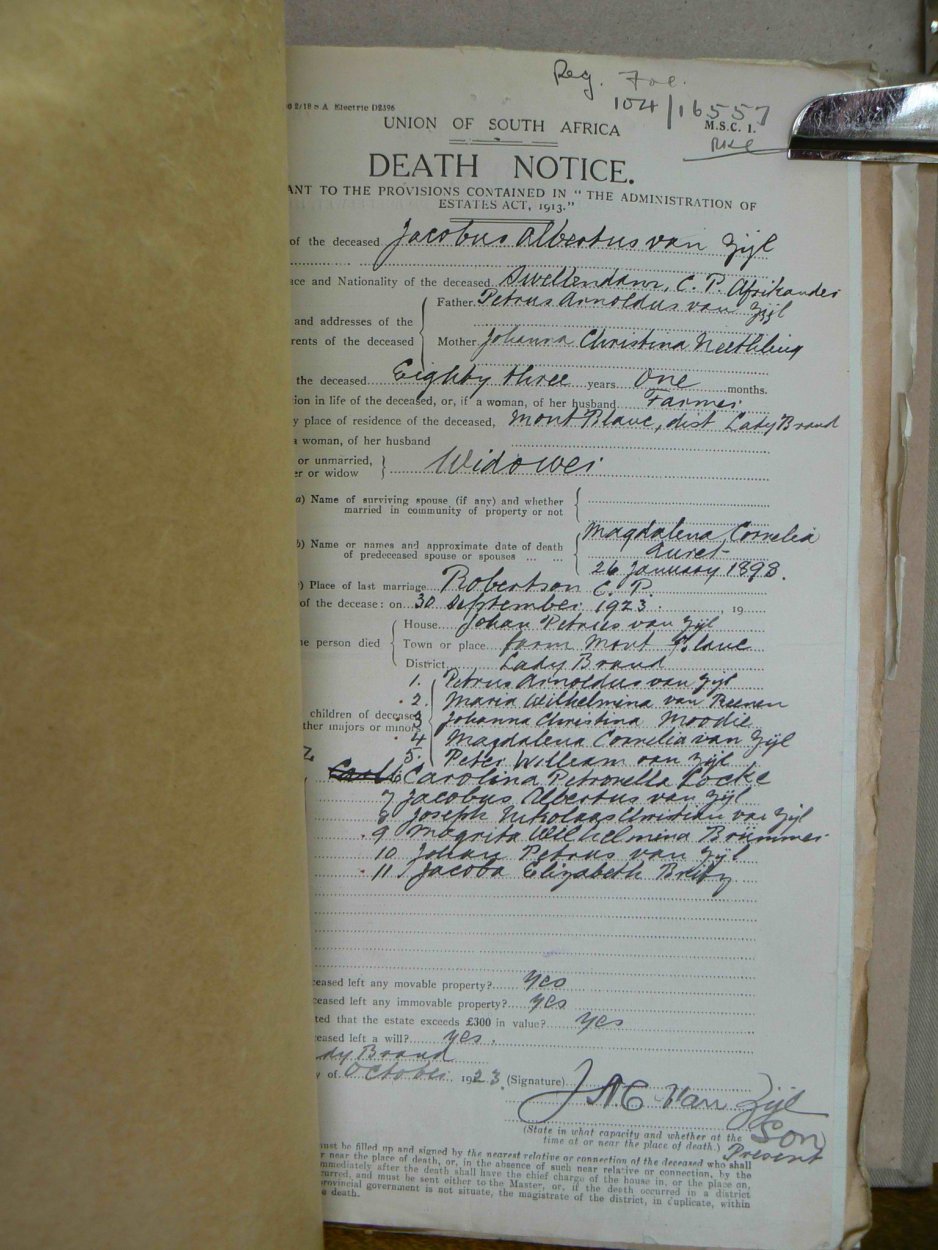 Reg. Fol.
104/16557
2/18 s A Electric D2396
M.S.C. 1.
UNION OF SOUTH AFRICA
DEATH NOTICE.
ANT TO THE PROVISIONS CONTAINED IN "THE ADMINISTRATION OF
ESTATES ACT, 1913."
of the deceased Jacobus Albertus van Zijl
ace and Nationality of the deceased Swellendam, C. P. Afrikander
Father. Petrus Arnoldus van Zijl
and addresses of the
rents of the deceased
Mother. Johanna Christina Neethling
the deceased Eighty three years One months.
tion in life of the deceased, or, if a woman, of her husband Farmer
y place of residence of the deceased, Mont Blanc, dist Lady Brand
a woman, of her husband
or unmarried,
er or widow
Widower
a) Name of surviving spouse (if any) and whether
married in community of property or not
b) Name or names and approximate date of death
of predeceased spouse or spouses
Magdalena Cornelia
Auret
26 January 1898.
c) Place of last marriage Robertson C. P.
of the decease: on 30 September 1923, 19
House Johan Petrus van Zijl
e person died
Town or place farm Mont Blanc
District Lady Brand
children of deceased
ther majors or minors
1. Petrus Arnoldus van Zijl
2. Maria Wilhelmina van Reenen
3 Johanna Christina Moodie
4 Magdalena Cornelia van Zijl
5. Peter William van Zijl
6 Carolina Petronella Locke
7 Jacobus Albertus van Zijl
8 Joseph Nikolaas Christian van Zijl
9 Magrita Wilhelmina Brümmer
10 Johan Petrus van Zijl
11 Jacoba Elizabeth
ceased left any movable property? yes
ceased left any immovable property? yes
ted that the estate exceeds £300 in value? yes
ceased left a will? yes.
dy Brand
y of October 1923. (Signature) van Zijl
(State in what capacity and whether at the
time at or near the place of death.)
Son
Present
must be filled up and signed by the nearest relative or connection of the deceased who shall
r near the place of death, or, in the absence of such near relative or connection, by the
mmediately after the death shall have the chief charge of the house in, or the place on,
curred, and must be sent either to the Master, or, if the death occurred in a district
provincial government is not situate, the magistrate of the district, in duplicate, within
e death.